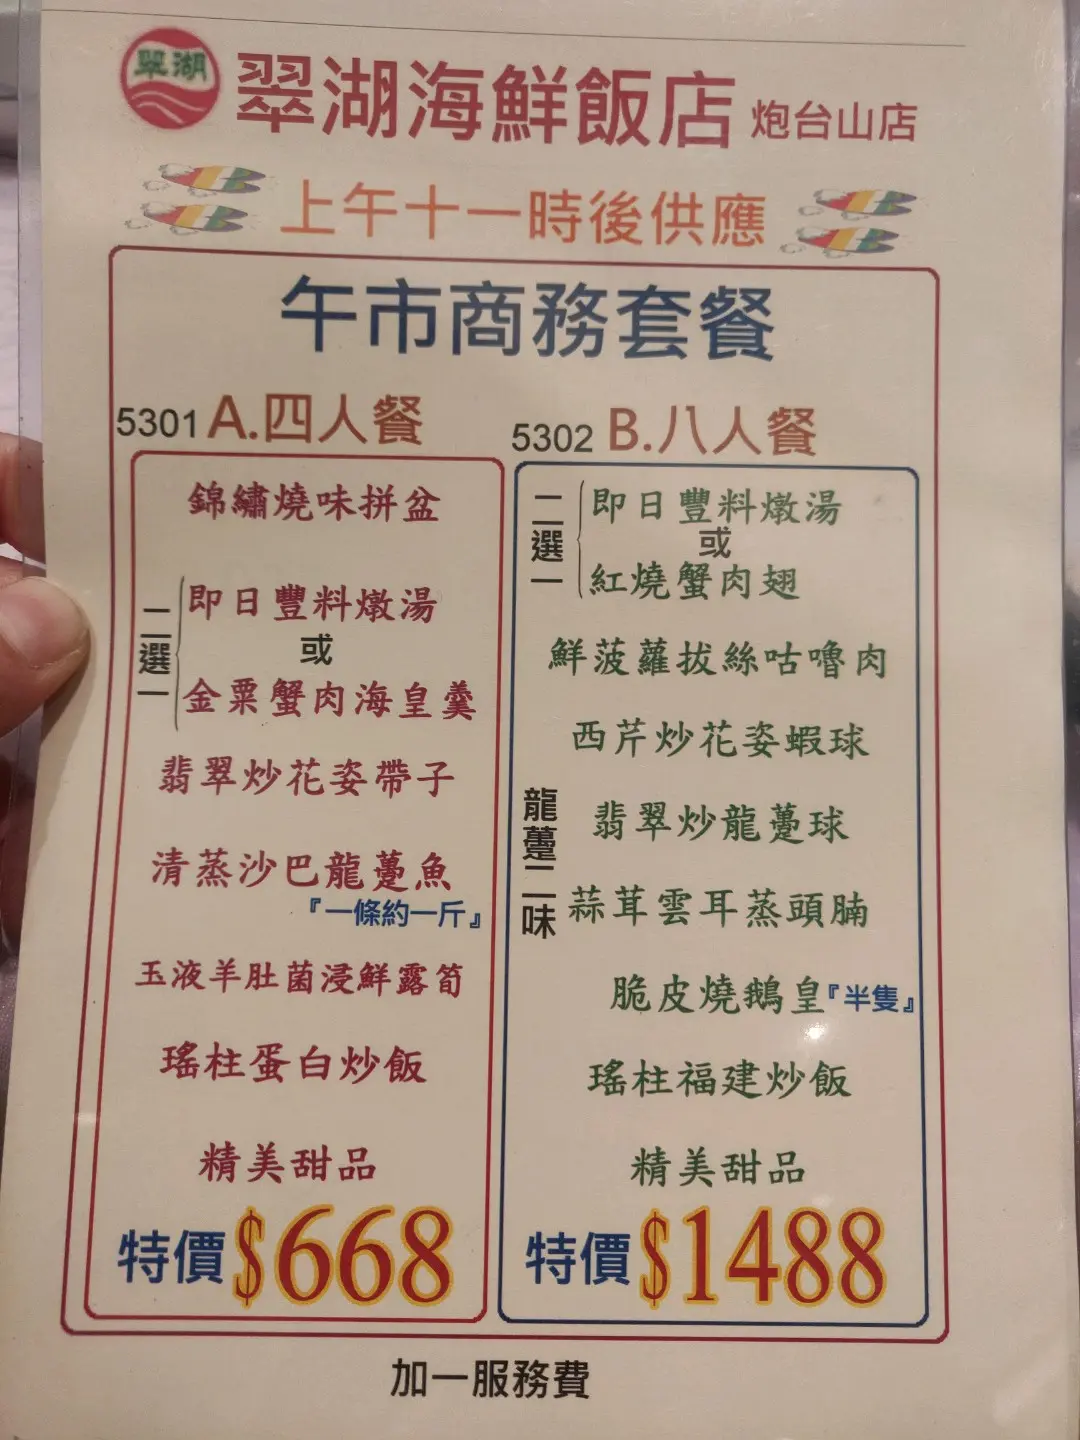 翠湖
翠湖海鮮飯店 炮台山店
上午十一時後供應
午市商務套餐
5301 A.四人餐
錦繡燒味拼盆
二選一
即日豐料燉湯
或
金粟蟹肉海皇羹
翡翠炒花姿帶子
清蒸沙巴龍躉魚
『一條約一斤』
玉液羊肚菌浸鮮露筍
瑤柱蛋白炒飯
精美甜品
特價$668
5302 B.八人餐
二選一
即日豐料燉湯
或
紅燒蟹肉翅
鮮菠蘿拔絲咕嚕肉
西芹炒花姿蝦球
龍躉二味
翡翠炒龍躉球
蒜茸雲耳蒸頭腩
脆皮燒鵝皇『半隻』
瑤柱福建炒飯
精美甜品
特價$1488
加一服務費